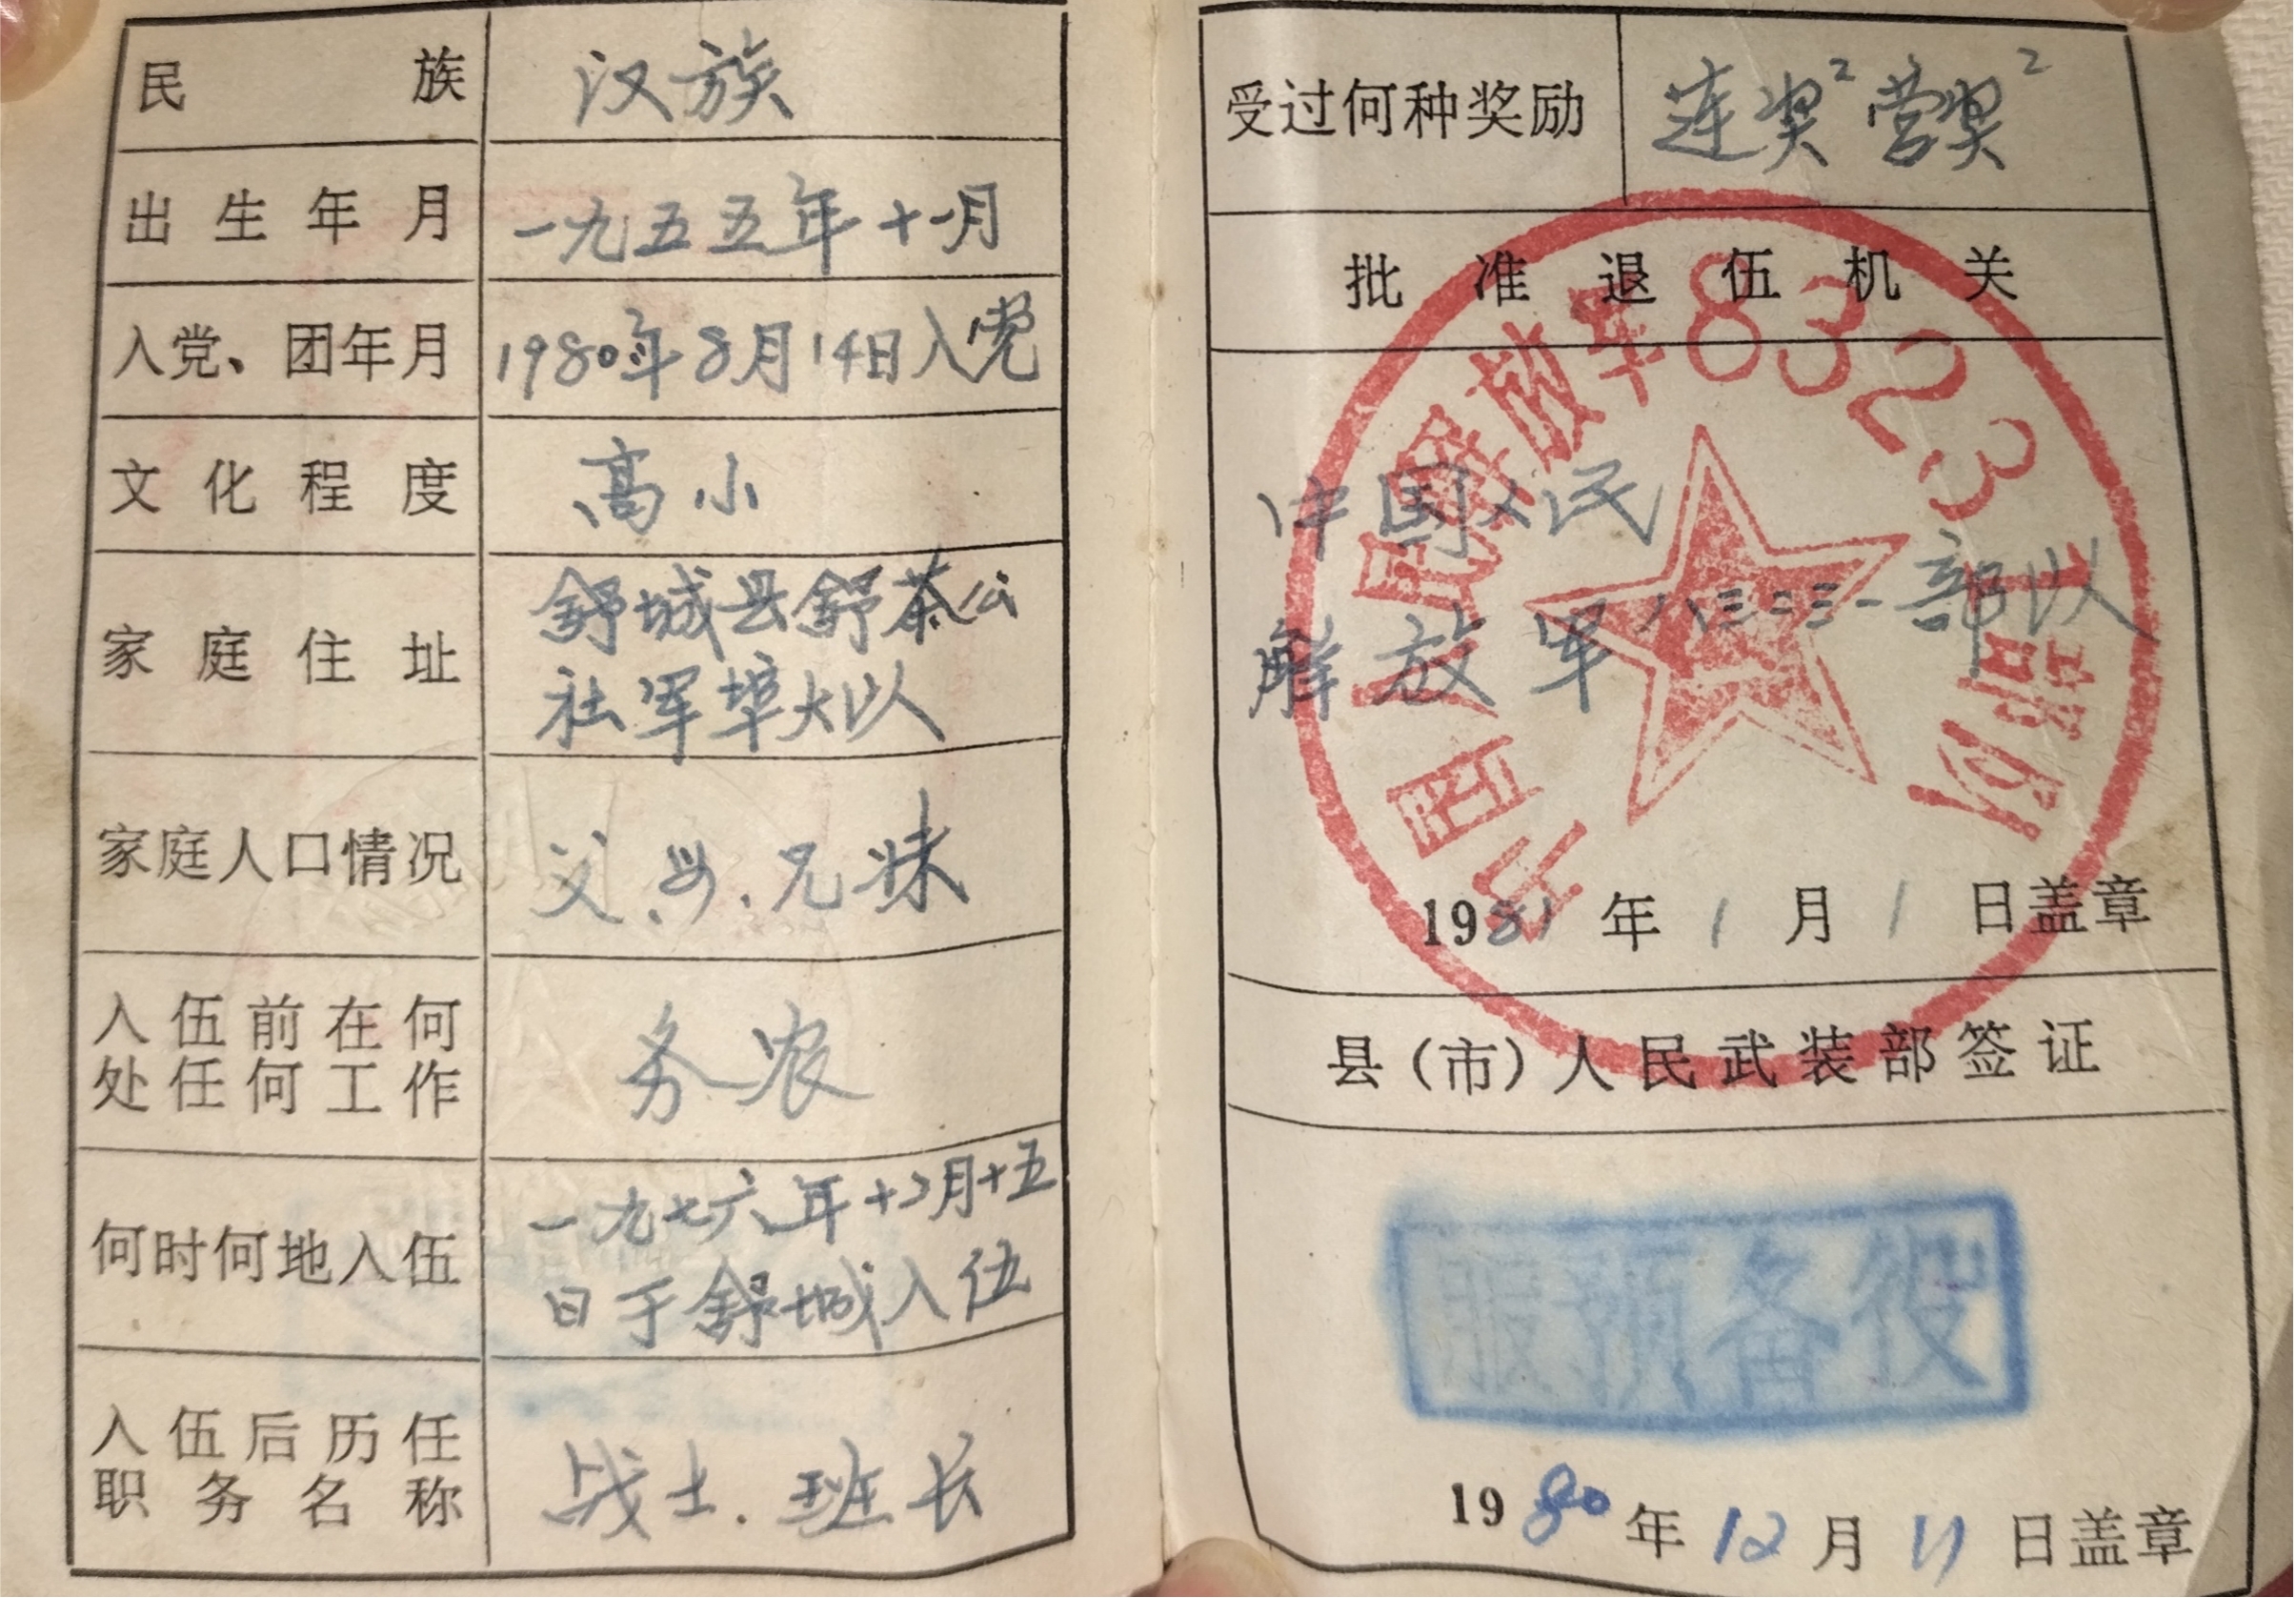 民族 汉族
出生年月 一九五五年十一月
入党、团年月 1980年8月14日入党
文化程度 高小
家庭住址 舒城县舒茶公
社军埠大队
家庭人口情况 父.母.兄妹
入伍前在何
处任何工作 务农
何时何地入伍 一九七六年十二月十五
日于舒城入伍
入伍后历任
职务名称 战士.班长
受过何种奖励 连奖2营奖2
批准退伍机关
中国人民
解放军八三二三一部队
中国人民解放军83231部队
1981年1月1日盖章
县(市)人民武装部签证
服预备役
1980年12月11日盖章